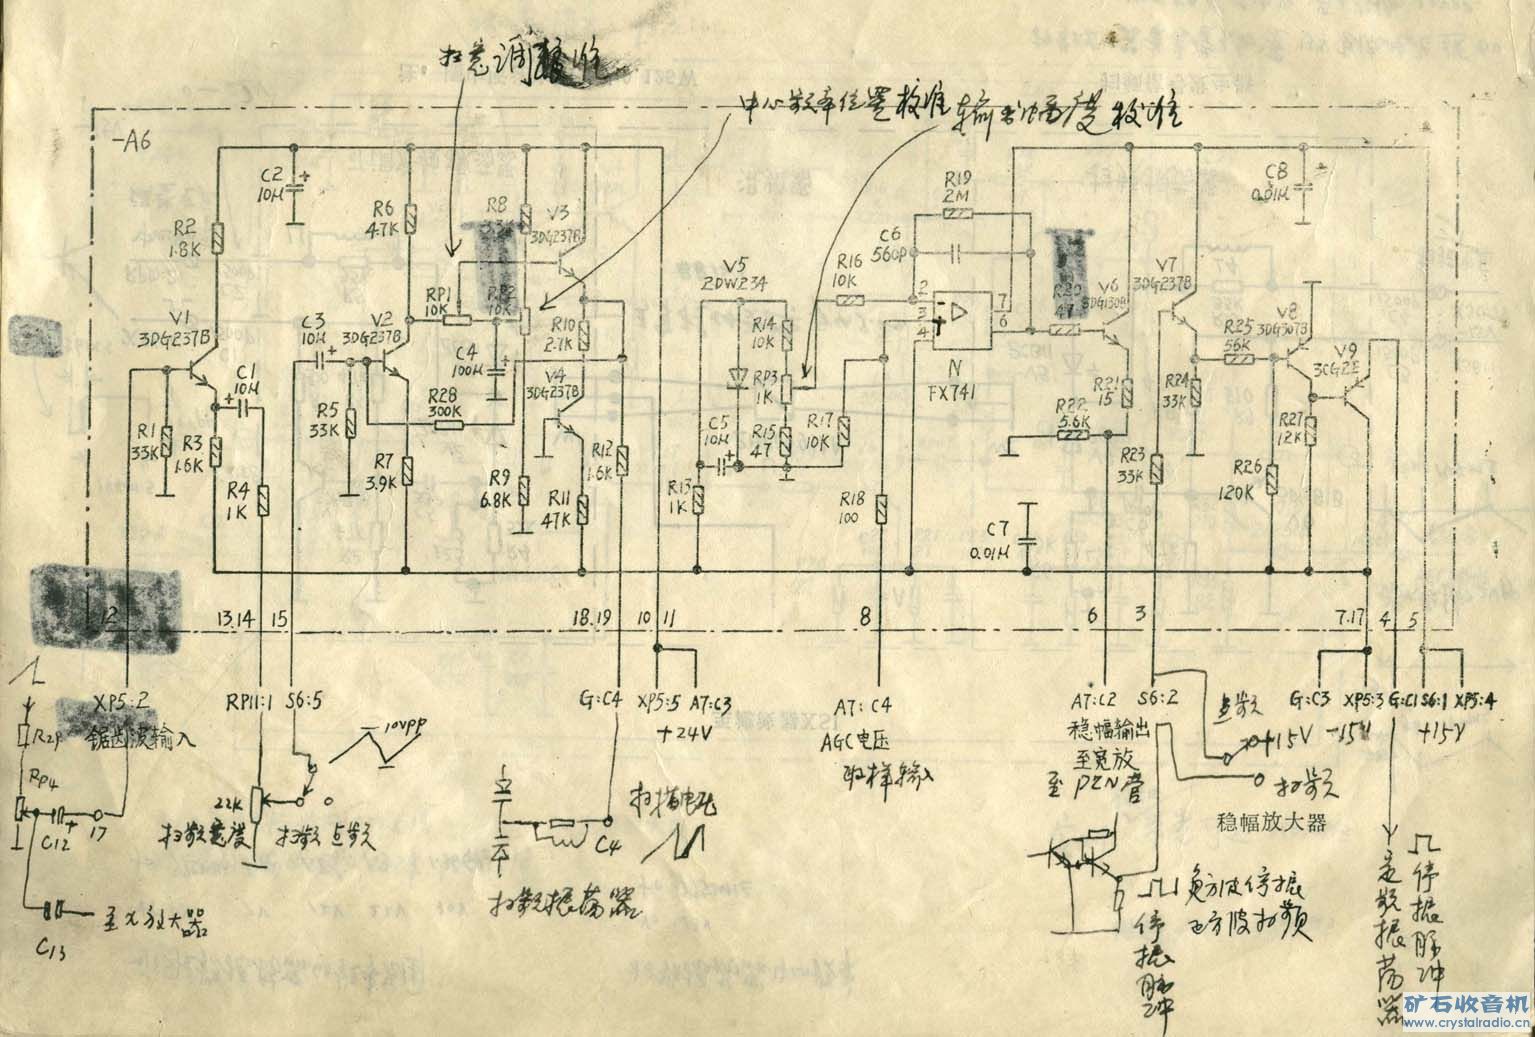 中心频率位置校准
输出幅度校准
-A6
C2
10µ
R2
1.8K
R6
4.7K
R8
3.3K
V3
3DG237B
V1
3DG237B
C3
10µ
V2
3DG237B
RP1
10K
RP2
10K
R10
2.7K
C1
10µ
C4
100µ
V4
3DG237B
R28
300K
R1
33K
R3
1.6K
R4
1K
R5
33K
R7
3.9K
R9
6.8K
R11
47K
R12
1.6K
V5
2DW234
R14
10K
RP3
1K
C5
10µ
R15
47
R17
10K
R13
1K
R18
100
R16
10K
C6
560P
R19
2M
2
3
4
7
6
N
FX741
R20
47
V6
3DG130B
R21
15
R22
5.6K
C7
0.01µ
V7
3DG237B
R23
33K
R24
33K
R25
56K
V8
3DG307B
V9
3CG2E
R26
120K
R27
12K
C8
0.01µ
12
13.14
15
18.19
10
11
8
6
3
7.17
4
5
XP5:2
锯齿波输入
RP11:1
S6:5
G:C4
XP5:5
A7:C3
+24V
A7:C4
AGC电压
取样输入
A7:C2
稳幅输出
至宽放
至PZN管
S6:2
点频
+15V
扫频
稳幅放大器
G:C3
XP5:3
-15V
G:C1
S6:1
XP5:4
+15V
R29
RP4
C12
17
C13
至X放大器
22K
扫频宽度
扫频
点频
10VPP
扫频振荡器
C4
扫描电压
负方波停振
正方波扫频
停振脉冲
定频振荡器
停振脉冲
矿石收音机
www.crystalradio.cn